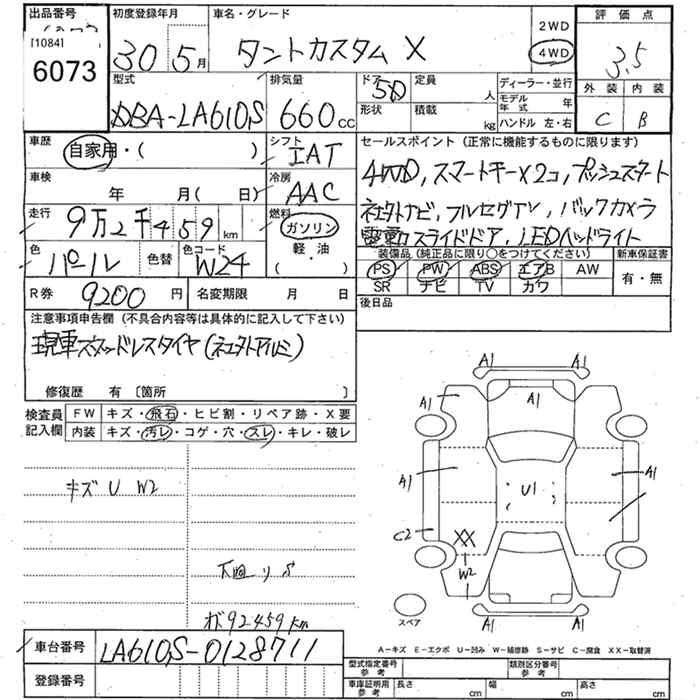 出品番号 初度登録年月 車名・グレード 2WD 評価点
[1084] 30 5月 タントカスタム X 4WD 3.5
6073
型式 排気量 ドア 5D 定員 人 ディーラー・並行 外装 内装
DBA-LA610S 660cc 形状 積載 kg モデル年式 年 C B
ハンドル 左・右
車歴 自家用・( ) シフト IAT セールスポイント(正常に機能するものに限ります)
車検 年 月( 日) 冷房 AAC 4WD, スマートキー×2コ, プッシュスタート
走行 9万2千459km 燃料 ガソリン 軽・油 ( ) ナビ, フルセグTV, バックカメラ
色 パール 色替 色コード W24 電動スライドドア, LEDヘッドライト
装備品(純正品に限り○をつけてください) 新車保証書
PS PW ABS エアB AW 有・無
SR ナビ TV カワ
R券 9200円 名変期限 月 日 後日品
注意事項申告欄(不具合内容等は具体的に記入して下さい)
現車スタッドレスタイヤ(
修復歴 有〔箇所 〕
検査員記入欄 FW キズ・飛石・ヒビ割・リペア跡・X要
内装 キズ・汚レ・コゲ・穴・スレ・キレ・破レ
キズ U W2
下廻りS
92459km
A1 A1
A1 A1 A1
A1 U1 A1
C2 XX
W2
A1 A1
スペア
A-キズ E-エクボ U-凹み W-補修跡 S-サビ C-腐食 XX-取替済
車台番号 LA610S-0128711
登録番号
型式指定番号 参考 類別区分番号 参考
車庫証明用 参考 長さ cm 幅 cm 高さ cm